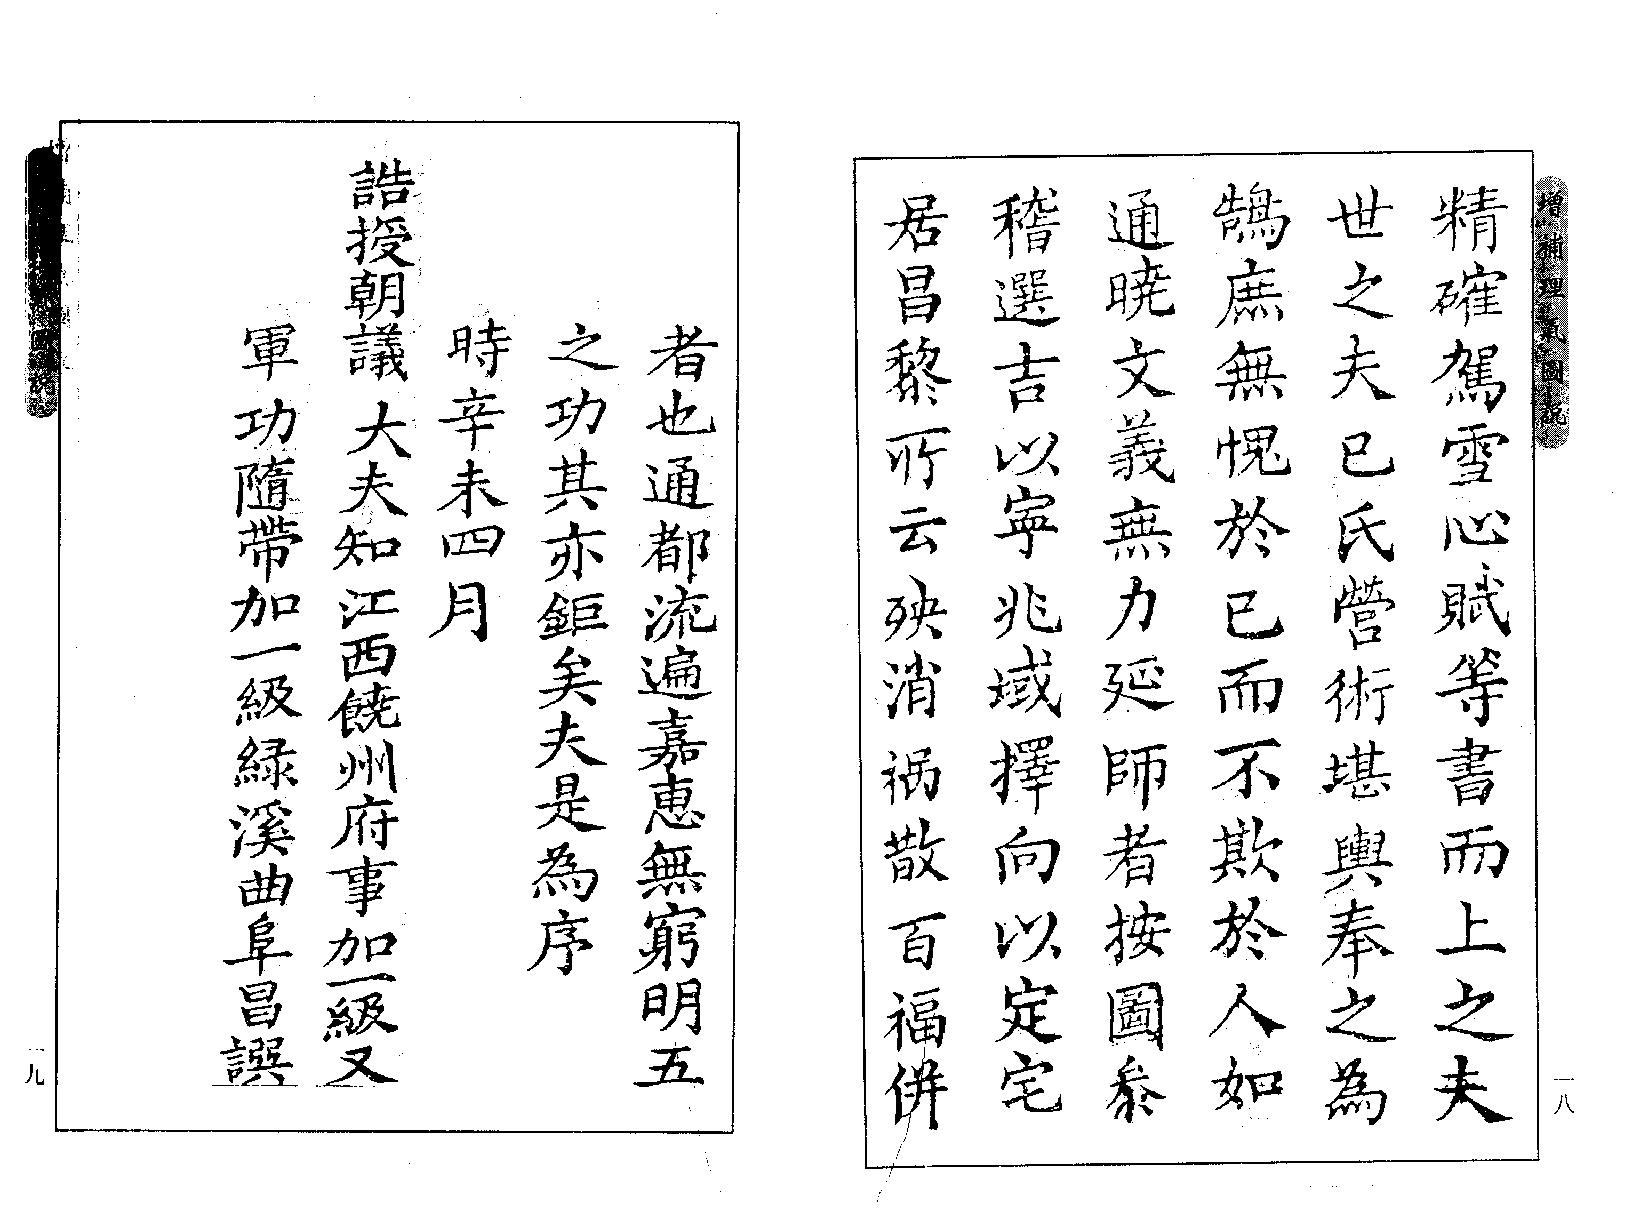 增補理氣圖說
精確駕雪心賦等書而上之夫
世之夫已氏營術堪輿奉之為
鵠庶無愧於已而不欺於人如
通曉文義無力延師者按圖叅
稽選吉以寧兆域擇向以定宅
居昌黎所云殃消祸散百福併
一八
者也通都流遍嘉惠無窮明五
之功其亦鉅矣夫是為序
時辛未四月
誥授朝議大夫知江西饒州府事加一級又
軍功隨帶加一級綠溪曲阜昌譔
一九